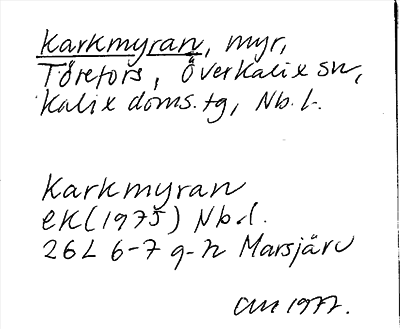 Karkmyran, myr,
Törefors, Överkalix sn,
Kalix doms.tg, Nb.l.
Karkmyran
ek (1975) Nb.l.
26L 6-7 g-h Marsjärv
1977.